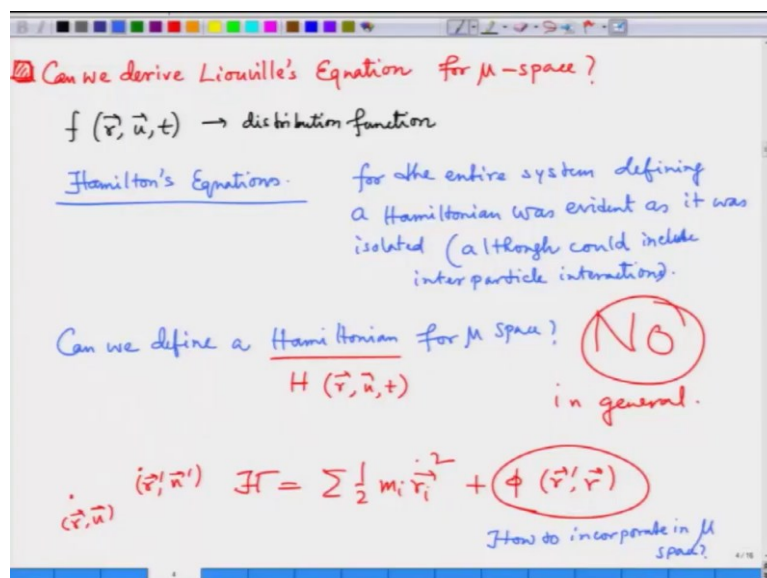 Can we derive Liouville's Equation for μ-space?
f (r⃗, u⃗, t) → distribution function
Hamilton's Equations.
for the entire system defining
a Hamiltonian was evident as it was
isolated (although could include
interparticle interactions).
Can we define a Hamiltonian for μ space? No
H (r⃗, u⃗, t)
in general.
(r⃗', u⃗') H = Σ ½ mᵢ ṙ⃗ᵢ² + ϕ (r⃗', r⃗)
(r⃗, u⃗)
How to incorporate in μ
space?
4/15